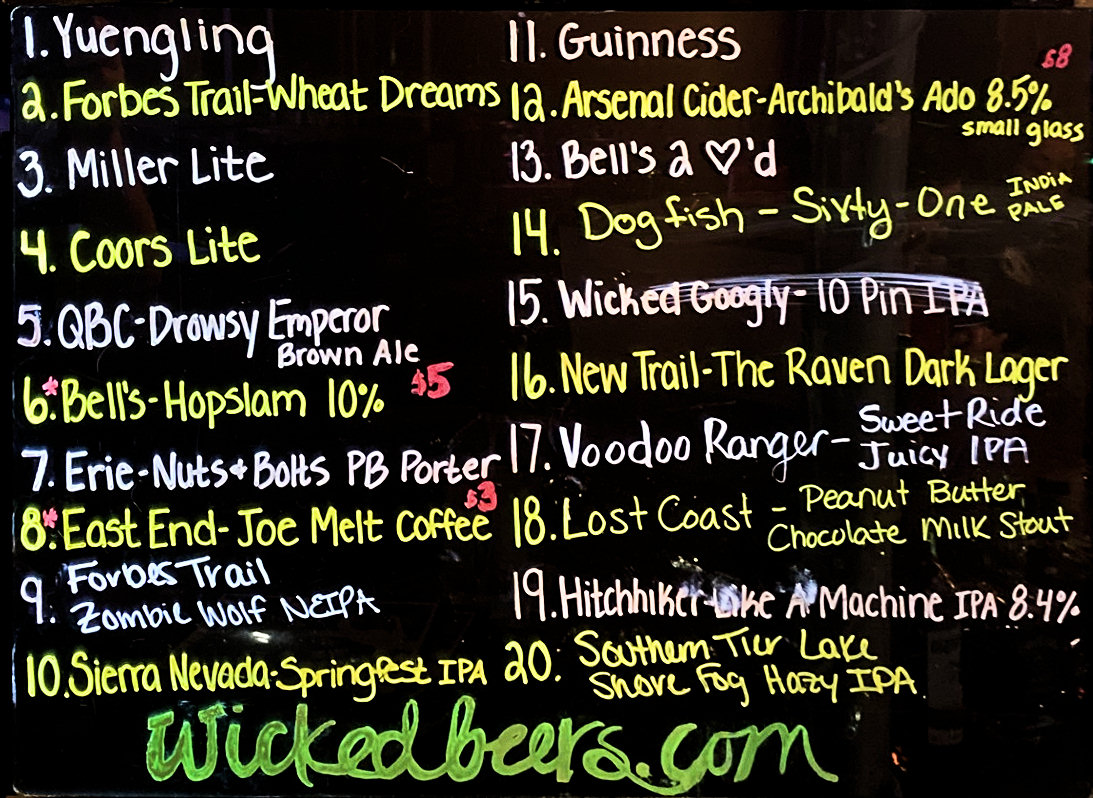 1. Yuengling
2. Forbes Trail-Wheat Dreams
3. Miller Lite
4. Coors Lite
5. QBC-Drowsy Emperor
Brown Ale
6.* Bell's-Hopslam 10% $5
7. Erie-Nuts+Bolts PB Porter
8.* East End-Joe Melt Coffee $3
9. Forbes Trail
Zombie Wolf NEIPA
10. Sierra Nevada-Springfest IPA
11. Guinness
$8
12. Arsenal Cider-Archibald's Ado 8.5%
small glass
13. Bell's 2 ♡'d
14. Dogfish - Sixty-One INDIA
PALE
15. Wicked Googly-10 Pin IPA
16. New Trail-The Raven Dark Lager
17. Voodoo Ranger- Sweet Ride
Juicy IPA
18. Lost Coast - Peanut Butter
Chocolate Milk Stout
19. Hitchhiker-Like A Machine IPA 8.4%
20. Southern Tier Lake
Shore Fog Hazy IPA
Wickedbeers.com